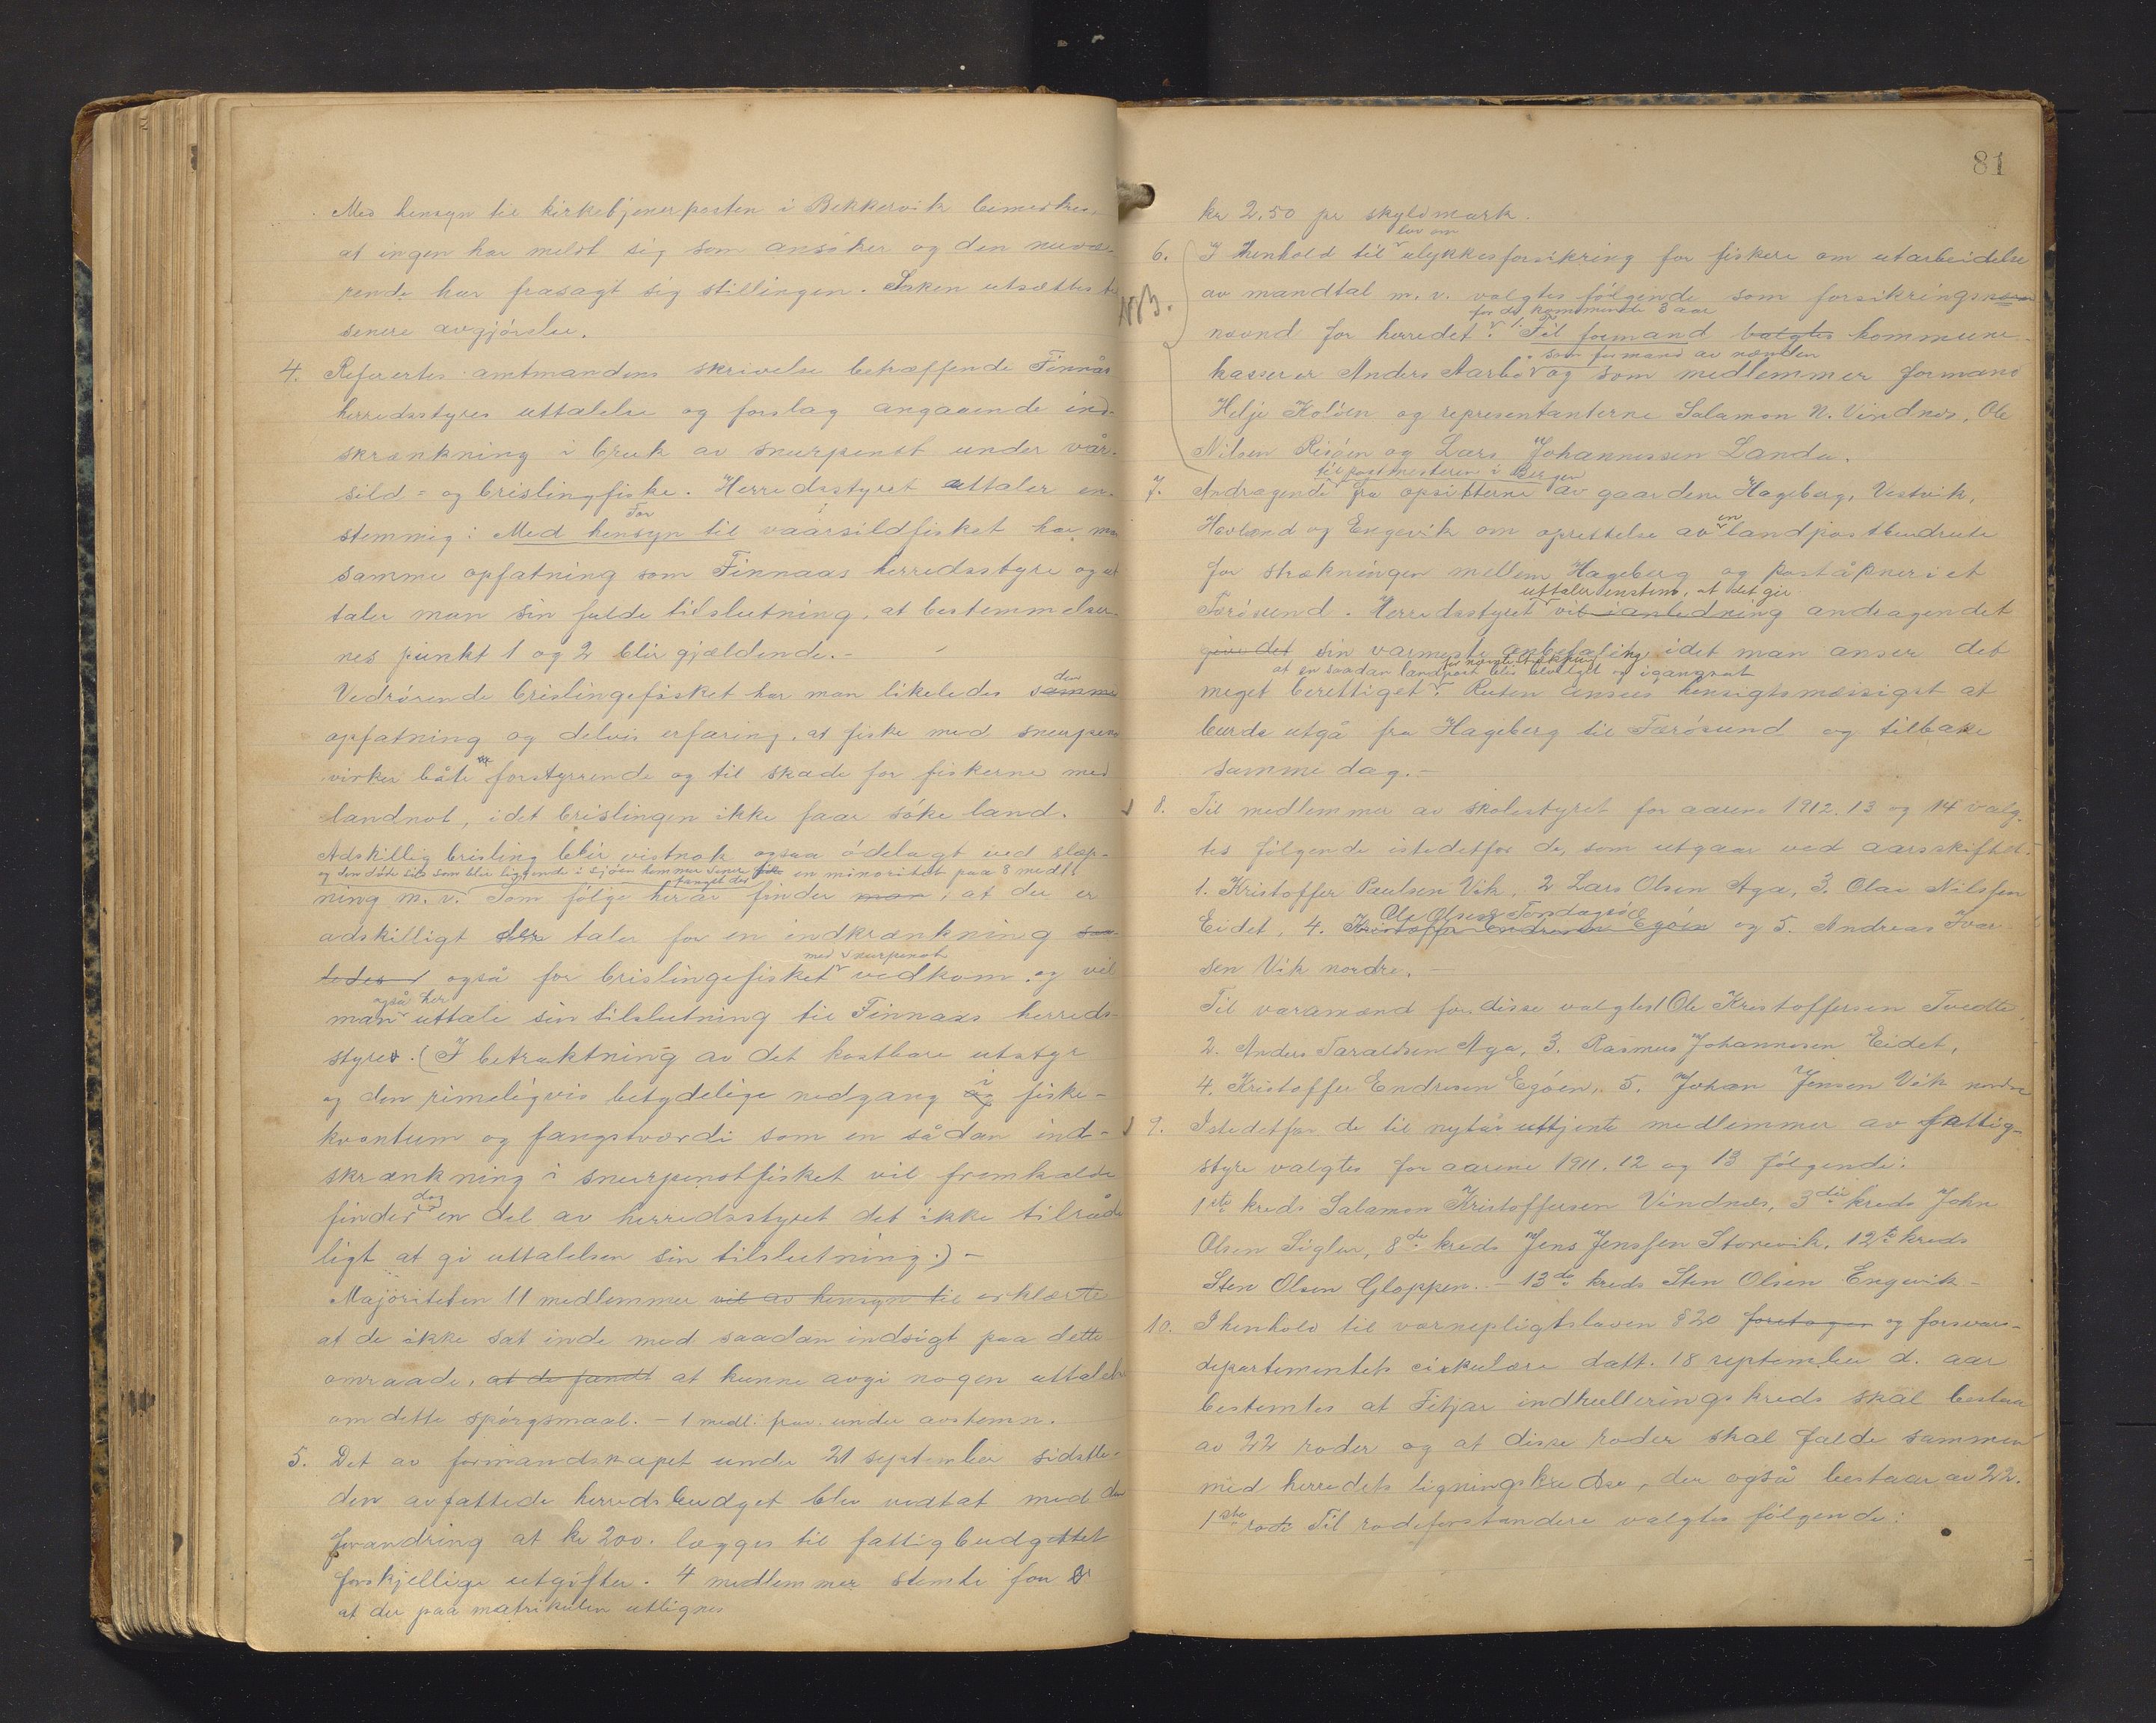 Med hensyn til kirketjenerposten i Bekkervik bemerkes,
at ingen har meldt sig som ansøker og den nuvæ-
rende har frasagt sig stillingen. Saken utsættes til
senere avgjørelse.
4. Refertes amtmandens skrivelse betræffende Finnås
herredsstyres uttalelse og forslag angaaende ind-
skrænkning i bruk av snurpenot under vår-
sild- og brislingfiske. Herredsstyret uttaler en-
For
stemmig: Med hensyn til vaarsildfisket har man
samme opfatning som Finnaas herredsstyre og ut-
taler man sin fulde tilslutning, at bestemmelser-
nes punkt 1 og 2 blir gjældende.-
den
Vedrørende brislingefisket har man likeledes samme
opfatning og delvis erfaring, at fiske med snurpenot
virker båte forstyrrende og til skade for fiskerne med
landnot, idet brislingen ikke faar søke land.
Adskillig brisling blir vistnok ogsaa ødelagt ved slæp-
og den døde sild som blir liggende i sjøen kommer senere en minoritet paa 8 medl.
ning m. v. Som følge herav finder man, at der er
adskilligt der taler for en indkrænkning saa-
med snurpenot
ledes også for brislingefisket vedkom. og vil
også her
man uttale sin tilslutning til Finnaas herreds-
styre. (I betraktning av det kostbare utstyr
i
og den rimeligvis betydelige nedgang og fiske-
kvantum og fangstværdi som en sådan ind-
skrænkning i snurpenotfisket vil fremkalde
dog
finder en del av herredsstyret det ikke tilråde
ligt at gi uttalelsen sin tilslutning.) -
Majoriteten 11 medlemmer vil av hensyn til erklærte
at de ikke sat inde med saadan indsigt paa dette
omraade, at de fandt at kunne avgi nogen uttalelse
om dette spørgsmaal. - 1 medl. frav. under avstemn.
5. Det av formandskapet under 21 september sidstle-
den avfattede herredsbudget blev vedtat med den
forandring at kr 200. lægges til fattigbudgettet
forskjellige utgifter. 4 medlemmer stemte for
at der paa matrikulen utlignes
81
kr 2,50 pr skyldmark.
lov om
6. I henhold til ulykkesforsikring for fiskere om utarbeidelse
av mandtal m. v. valgtes følgende som forsikrings
NB.
for de kommende 3 aar
nævnd for herredet: Til formand valgtes kommune-
som formand av nævnden
kasserer Anders Aarbø og som medlemmer formand
Helje Koløen og representanterne Salamon N. Vindnes, Ole
Nilsen Risøen og Lars Johannessen Landa.
til postmesteren i Bergen
7. Andragende fra opsitterne av gaardene Hageberg, Vestvik,
en
Hovland og Engevik om oprettelse av landpostbudrute
for strækningen mellem Hageberg og poståpneriet
uttaler enstem. at det gir
Færøsund. Herredsstyret vil i anledning andragendet
give det sin varmeste anbefaling idet man anser det
for nævnte strækning
at en saadan landpost blir bevilget og igangsat
meget berettiget. Ruten ansees hensigtsmæssigst at
burde utgå fra Hageberg til Færøsund og tilbake
samme dag.-
8. Til medlemmer av skolestyret for aarene 1912. 13 og 14 valg-
tes følgende istedetfor de, som utgaar ved aarsskiftet.
1. Kristoffer Paulsen Vik, 2 Lars Olsen Aga, 3. Olai Nilssen
Ole Olsen Torsdagsø
Eidet, 4. Kristoffer Endresen Egøen og 5. Andreas Ivar-
sen Vik nordre. -
Til varamænd for disse valgtes 1 Ole Kristoffersen Tvedte,
2. Anders Taraldsen Aga, 3. Rasmus Johannesen Eidet,
4. Kristoffer Endresen Egøen, 5. Johan Jensen Vik nordre
9. Istedetfor de til nytår uttjente medlemmer av fattig-
styre valgtes for aarene 1911. 12 og 13 følgende:
1ste kreds Salamon Kristoffersen Vindnes, 3die kreds John
Olsen Sigler, 8de kreds Jens Jenssen Storevik, 12te kreds
Sten Olsen Gloppen. - 13de kreds Sten Olsen Engevik -
10. I henhold til værnepligtsloven § 20 foretages og forsvars-
departementets cirkulære datt. 18 september d. aar
bestemtes at Fitjar indrulleringskreds skal bestaa
av 22 roder og at disse roder skal falde sammen
med herredets ligningskredse, der også bestaar av 22.
1ste rode Til rodeforstandere valgtes følgende: